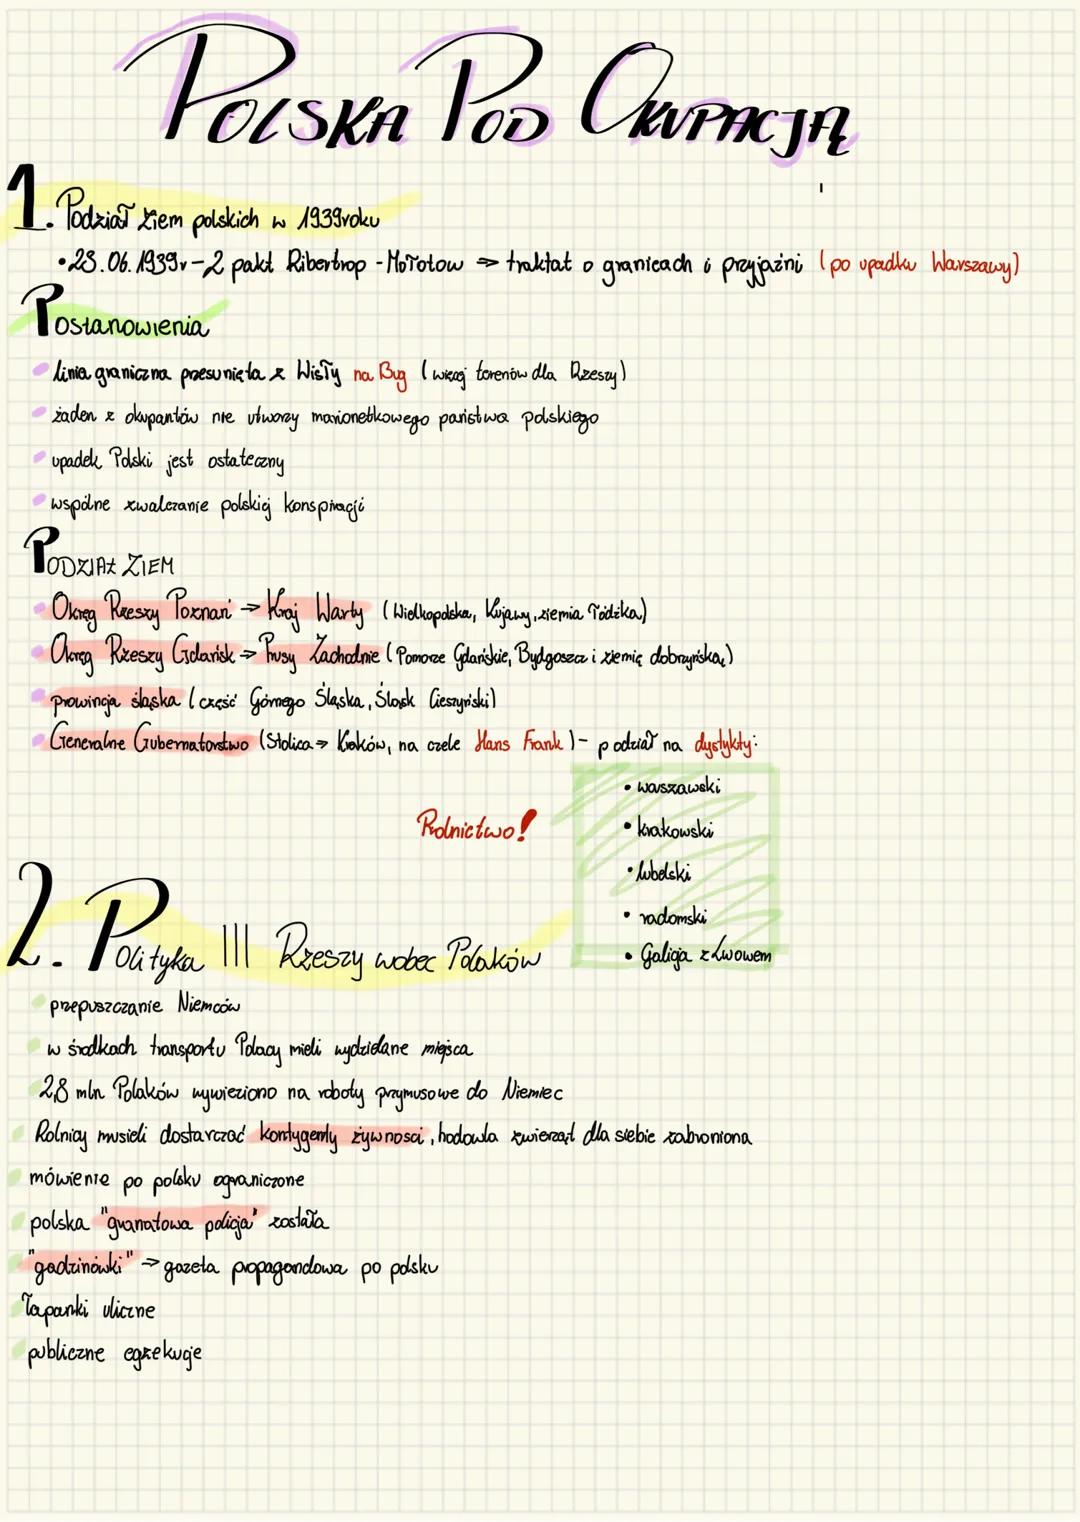 POLSKA POD OKUPACJĄ
1. Podział ziem polskich w 1939roku
•23.06.1939r-2 pakt Ribertrop - Mołotow => traktat o granicach i przyjaźni (po upadku Warszawy)
Postanowienia
linia graniczna przesunięta z Wisły na Bug (więcej terenów dla Rzeszy)
żaden z okupantów nie utworzy marionetkowego państwa polskiego
upadek Polski jest ostateczny
wspólne zwalczanie polskiej konspiracji
PODZIAŁ ZIEM
Okręg Rzeszy Poznań → Kraj Warty (Wielkopolska, Kujawy, ziemia łódzka)
Okręg Rzeszy Gdańsk → Prusy Zachodnie (Pomorze Gdańskie, Bydgoszcz i ziemię dobrzyńską)
prowincja śląska (część Górnego Śląska, Śląsk Cieszyński)
Generalne Gubernatorstwo (Stolica → Kraków, na czele Hans Frank) - podział na dystykty:
• warszawski
• krakowski
• lubelski
• radomski
• Galicja z Lwowem
Rolnictwo!
2. Polityka III Rzeszy wobec Polaków
przepuszczanie Niemców
w środkach transportu Polacy mieli wydzielane miejsca
2,8 mln Polaków wywieziono na roboty przymusowe do Niemiec
Rolnicy musieli dostarczać kontygenty żywności, hodowla zwierząt dla siebie zabroniona
mówienie po polsku ograniczone
polska "granatowa policja" została
"gadzinówki" → gazeta propagandowa po polsku
łapanki uliczne
publiczne egzekucje